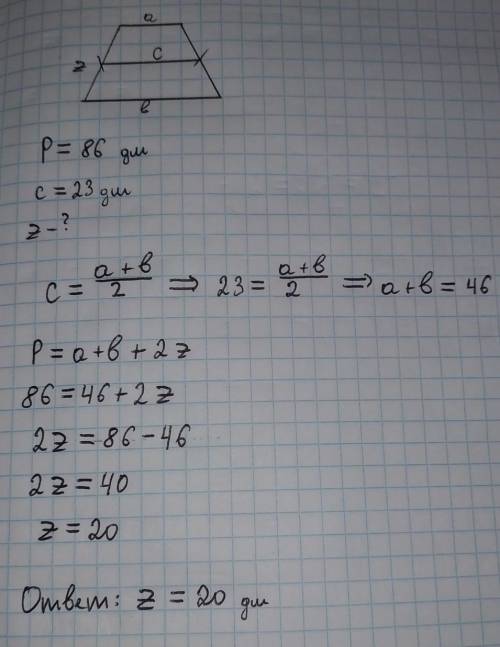 a
c
z
в
P = 86 дм
c = 23 дм
z - ?
C = a + в / 2 ⇒ 23 = a + в / 2 ⇒ a + в = 46
P = a + в + 2z
86 = 46 + 2z
2z = 86 - 46
2z = 40
z = 20
Ответ: z = 20 дм